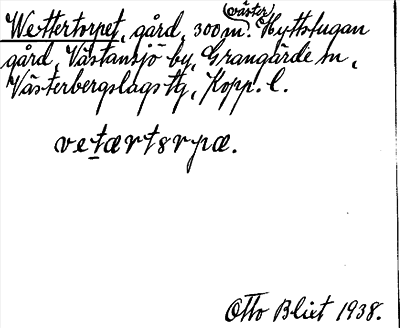 Wettertorpet, gård, 300 m. väster Hyttstugan
gård, Västansjö by, Grangärde sn,
Västerbergslags tg, Kopp. l.
vetærtsrpæ.
Otto Blixt 1938.